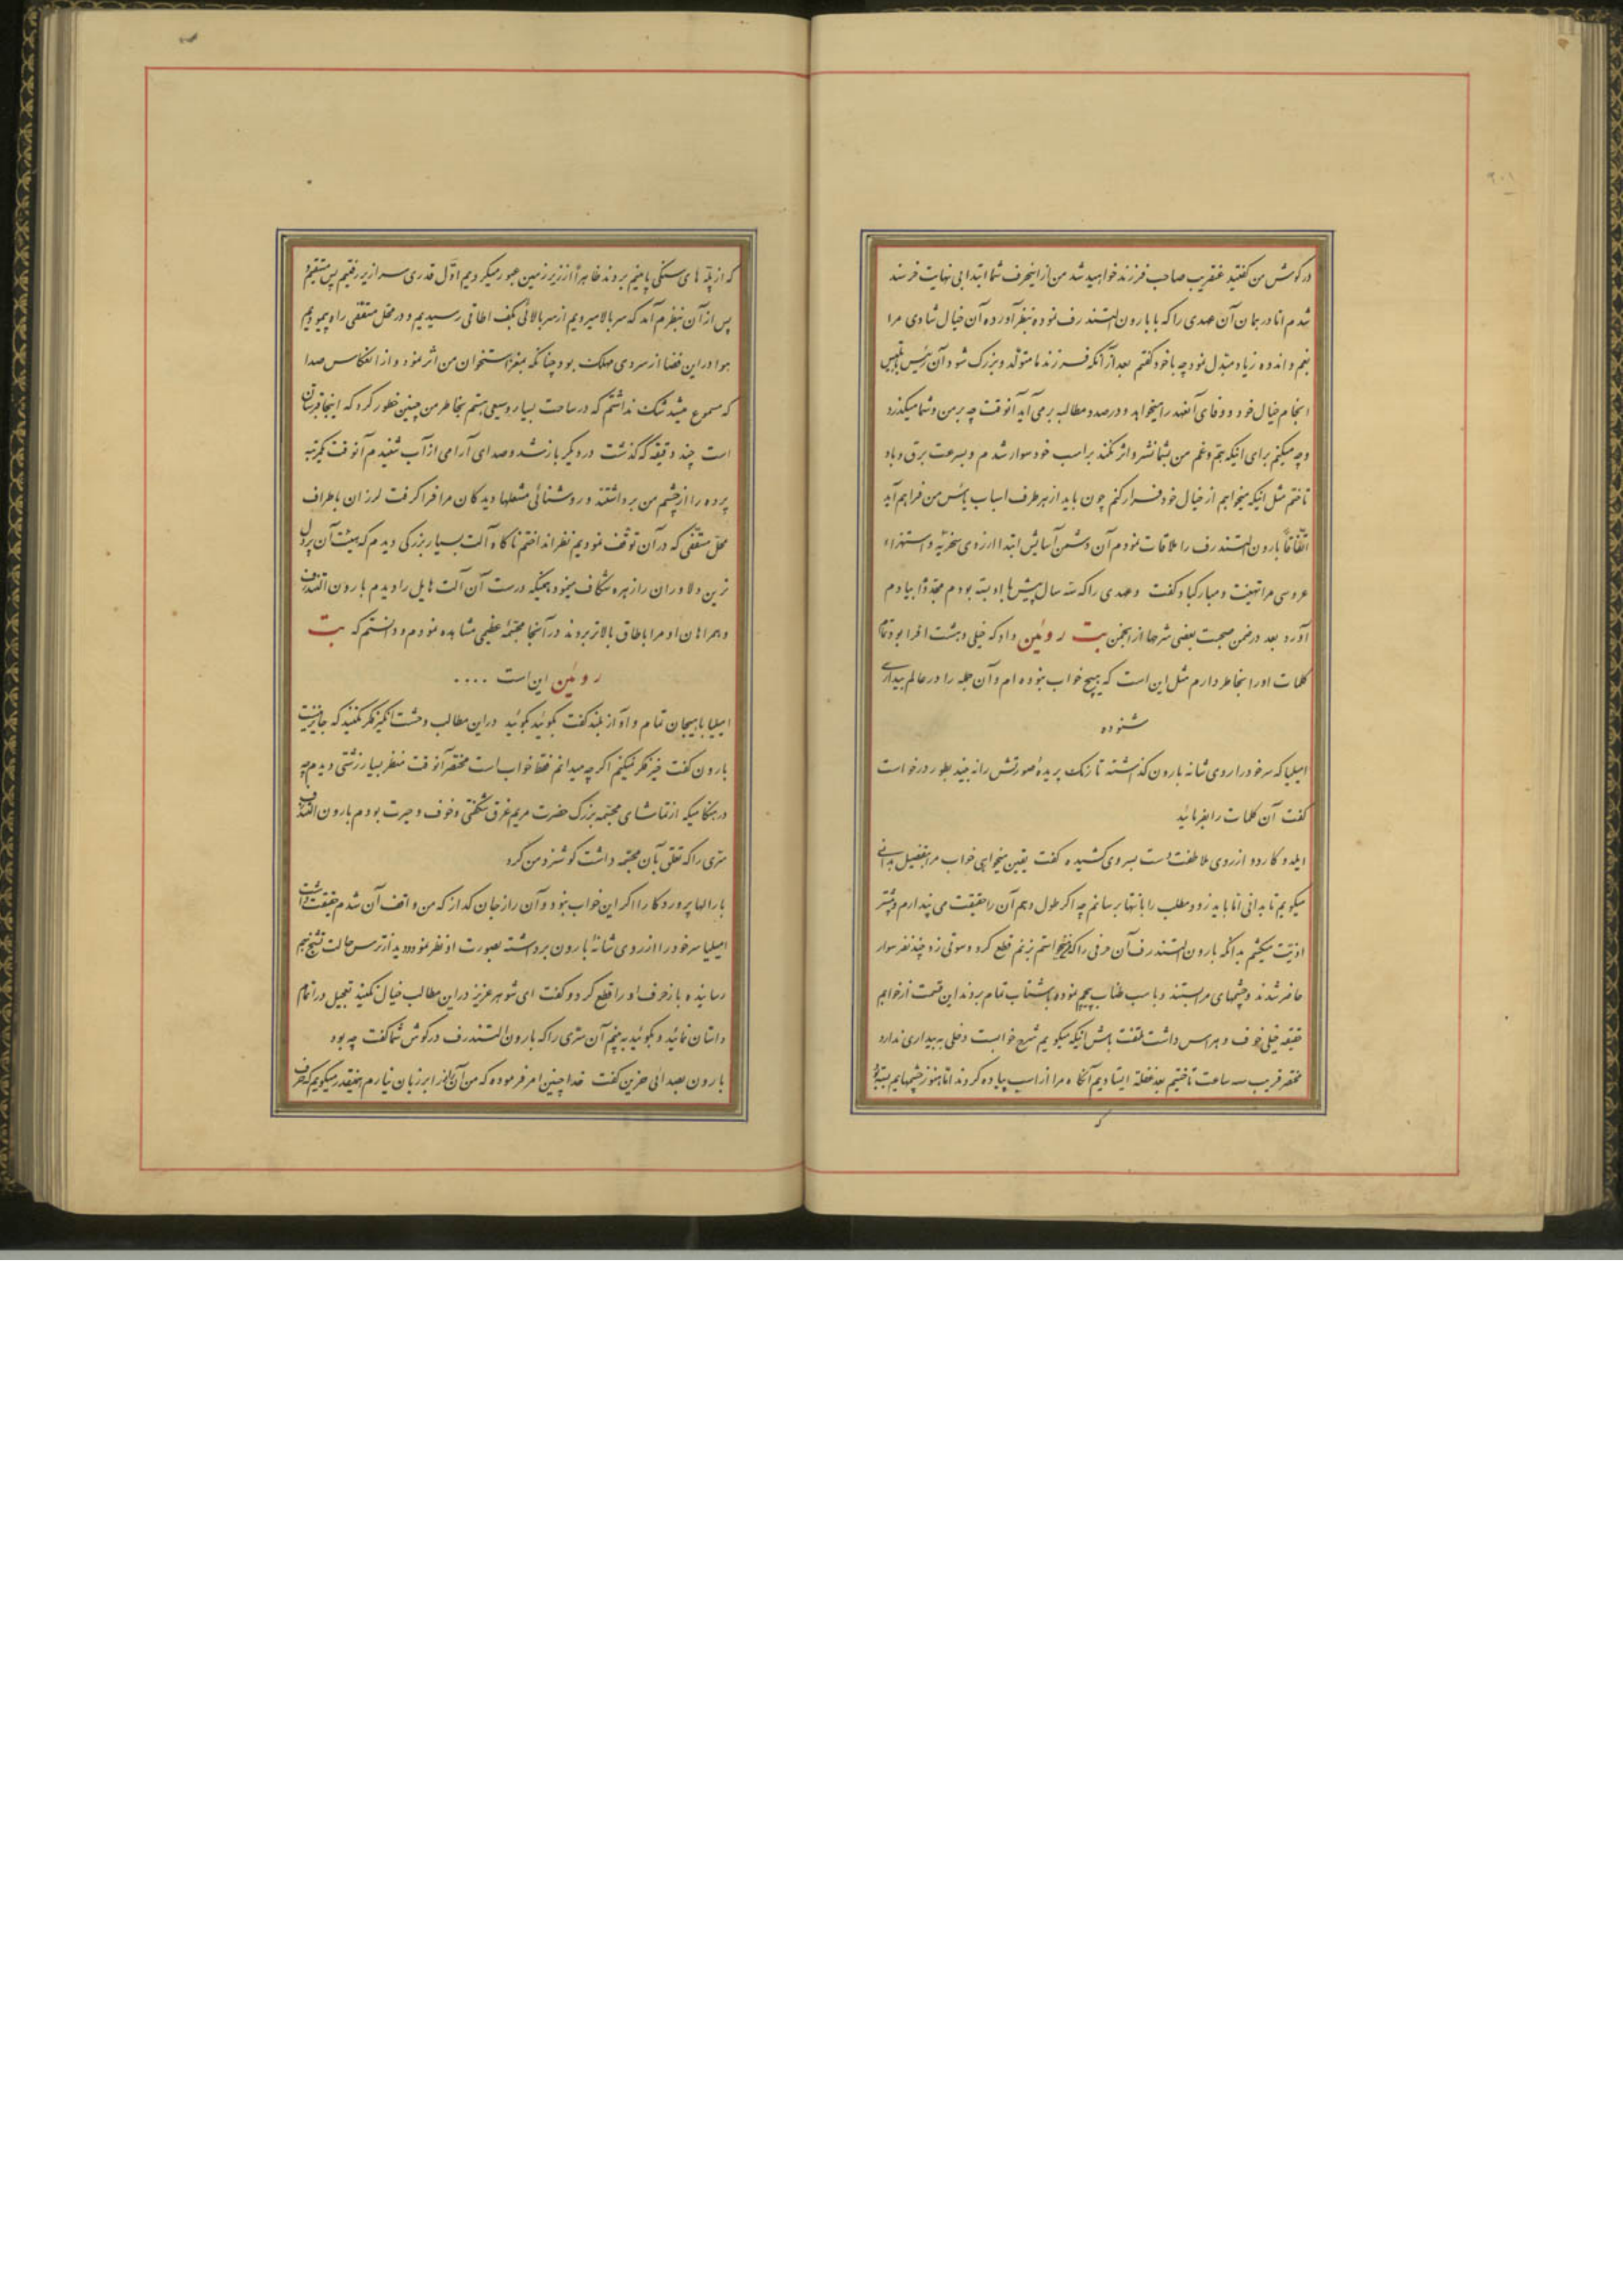 در گوش من گفتید عنقریب صاحب فرزند خواهید شد من از اینحرف شما ابتدا بی نهایت خرسند
شدم اما در همان آن عهدی را که با بارون الستندرف نموده بنظر آورده آن خیال شادی مرا
بغم و اندوه زیاد مبدل نمود چه با خود گفتم بعد از آنکه فرزند ما متولد و بزرگ شود آن رئیس
انجام خیال خود و وفای آنعهد را میخواهد و در صدد مطالبه برمی آید آنوقت چه بر من و شما میگذرد
و چه میکنم برای اینکه هم و غم من بشما نشر و اثر نکند بر اسب خود سوار شدم و بسرعت برق و باد
تاختم مثل اینکه میخواهم از خیال خود فرار کنم چون باید از هر طرف اسباب یأس من فراهم آید
اتفاقاً بارون الستندرف را ملاقات نمودم آن دشمن آسایش ابتدا از روی سخریه و استهزاء
عروسی مرا تهنیت و مبارکباد گفت و عهدی را که سه سال پیش با او بسته بودم مجدداً بیادم
آورد بعد در ضمن صحبت بعضی شرحها از انجمن بت روئین داد که خیلی وحشت افزا بود تمام
کلمات او را بخاطر دارم مثل این است که هیچ خواب نبوده ام و آن جمله را در عالم بیداری
شنوده
امیلیا که سر خود را روی شانه بارون گذاشته تا رنگ پریدهٔ صورتش را نه بیند بطور درخواست
گفت آن کلمات را بفرمائید
ایلدو کاردو از روی ملاطفت دست بسر وی کشیده گفت یقین میخواهی خواب مرا بتفصیل بدانی
میگویم تا بدانی اما باید زود مطلب را بانتها برسانم چه اگر طول دهم آن را حقیقت می پندارم و بیشتر
اذیت میکشم بدانکه بارون الستندرف آن حرفی را که میخواستم بزنم قطع کرد و سوتی زد چند نفر سوار
حاضر شدند و چشمهای مرا بستند و با اسب طناب پیچم نموده بشتاب تمام بردند این قسمت از خوابم
حقیقة خیلی خوف و هراس داشت ملتفت باش اینکه میگویم شرح خوابست دخلی به بیداری ندارد
مختصر قریب سه ساعت تاختیم بعد غفلة ایستادیم آنگاه مرا از اسب پیاده کردند اما هنوز چشمهایم بسته بود
که از پله های سنگی پایینم بردند ظاهراً از زیر زمین عبور میکردیم اول قدری سرازیر رفتیم پس مستقیم و
پس از آن بنظرم آمد که سربالا میرویم از سربالائی بکف اطاقی رسیدیم و در محل مسقفی راه پیمودیم
هوا در این فضا از سردی مهلک بود چنانکه بمغز استخوان من اثر نمود و از انعکاس صدا
که مسموع میشد شک نداشتم که در ساحت بسیار وسیعی هستم بخاطر من چنین خطور کرد که اینجا قبرستان
است چند دقیقه که گذشت در دیگر باز شد و صدای آرامی از آب شنیدم آنوقت یکمرتبه
پرده را از چشم من برداشتند و روشنائی مشعلها دیدگان مرا فرا گرفت لرزان باطراف
محل مسقفی که در آن توقف نمودیم نظر انداختم ناگاه آلت بسیار بزرگی دیدم که هیئت آن پردل
ترین دلاوران را زهره شکاف مینمود همینکه درست آن آلت هایل را دیدم بارون الستندرف
و همراهان او مرا باطاق بالاتر بردند در آنجا مجسمه عظیمی مشاهده نمودم و دانستم که بت
روئین این است ....
امیلیا با هیجان تمام و آواز بلند گفت بگوئید بگوئید در این مطالب وحشت انگیز فکر نکنید که جایز نیست
بارون گفت خیر فکر نمیکنم اگر چه میدانم فقط خواب است مختصر آنوقت منظر بسیار زشتی دیدم چه
در هنگامیکه از تماشای مجسمه بزرگ حضرت مریم غرق شگفتی و خوف و حیرت بودم بارون الستندرف
سری را که تعلق بآن مجسمه داشت گوشزد من کرد
بارالها پروردگارا اگر این خواب نبود و آن راز جان گداز که من واقف آن شدم حقیقت داشت
امیلیا سر خود را از روی شانهٔ بارون برداشته بصورت او نظر نمود و دید از ترس حالت تشنج بهم
رسانیده باز حرف او را قطع کرد و گفت ای شوهر عزیز در این مطالب خیال نکنید تعجیل در اتمام
داستان نمائید و بگوئید به بینم آن سری را که بارون الستندرف در گوش شما گفت چه بود
بارون بصدائی حزین گفت خدا چنین امر فرموده که من آن راز را بر زبان نیارم همینقدر میگویم که حرف